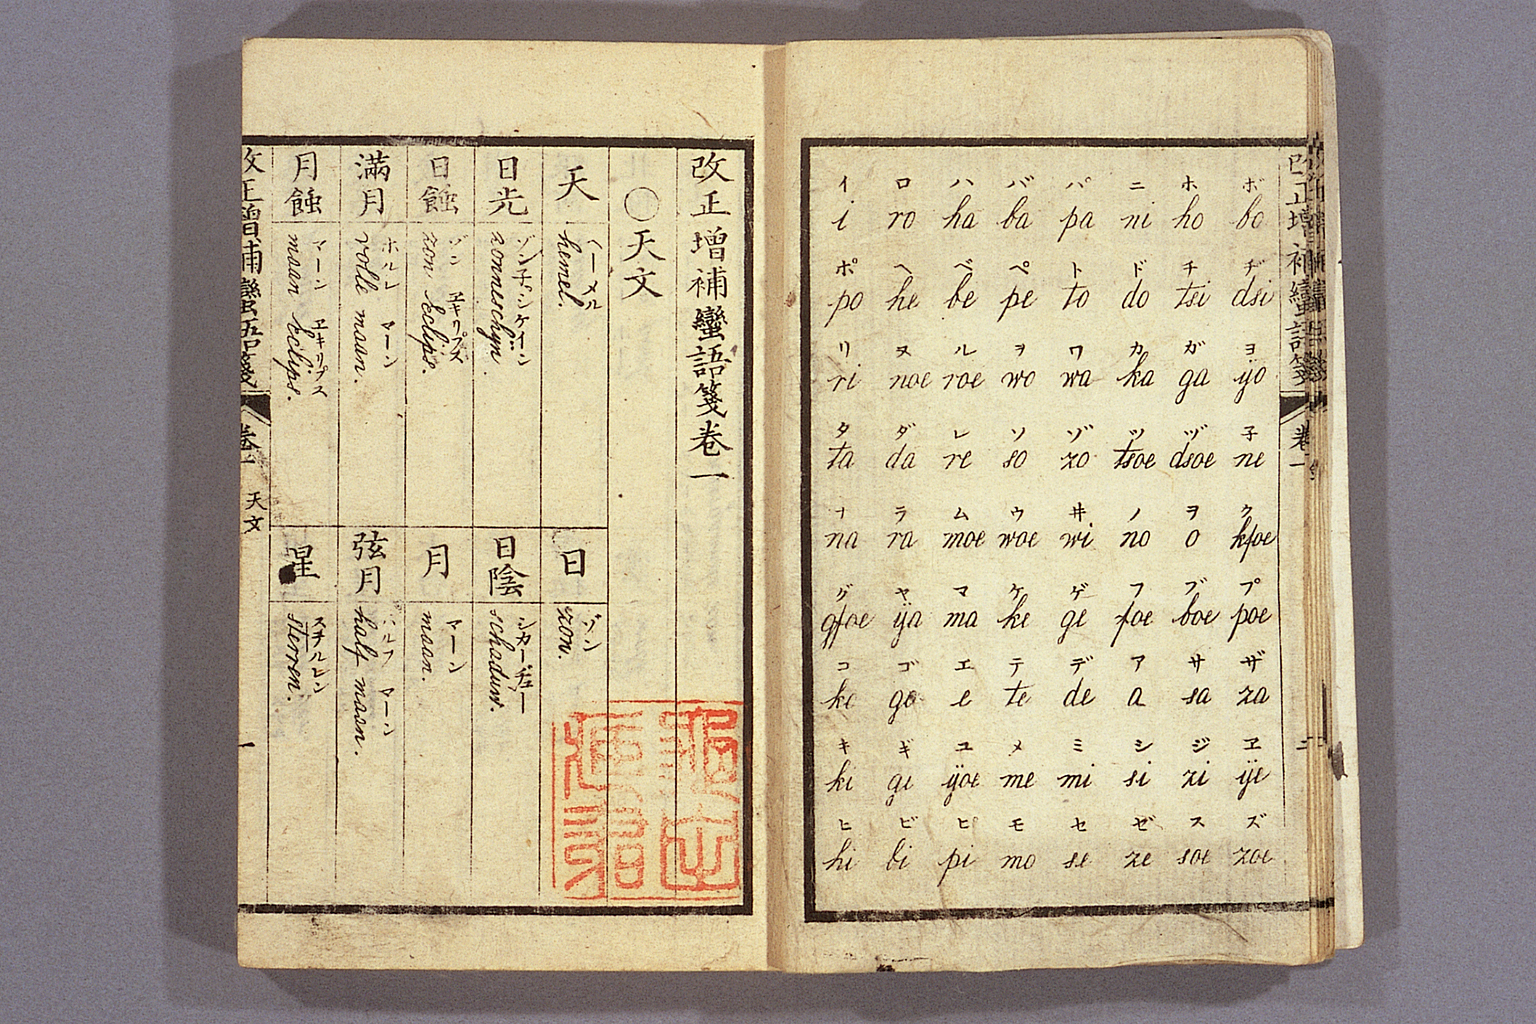 イ ロ ハ バ パ ニ ホ ボ
i ro ha ba pa ni ho bo
ポ ヘ ベ ペ ト ド チ ヂ
po he be pe to do tsi dsi
リ ヌ ル ヲ ワ カ ガ ヨ
ri noe roe wo wa ka ga ÿo
タ ダ レ ソ ゾ ツ ヅ 子
ta da re so zo tsoe dsoe ne
ナ ラ ム ウ ヰ ノ ヲ ク
na ra moe woe wi no o kfoe
グ ヤ マ ケ ゲ フ ブ プ
gfoe ÿa ma ke ge foe boe poe
コ ゴ エ テ デ ア サ ザ
ko go e te de a sa za
キ ギ ユ メ ミ シ ジ ヱ
ki gi ÿoe me mi si zi ÿe
ヒ ビ ピ モ セ ゼ ス ズ
hi bi pi mo se ze soe zoe
改正増補蠻語箋 卷一
改正増補蠻語箋卷一
○天文
天
ヘーメル
hemel.
日
ゾン
zon.
日光
ゾン子ッシケイン
zonneschyn.
日陰
シカーデュー
schaduw.
日蝕
ゾン ヱキリプス
zon Eclips.
月
マーン
maan.
満月
ホルレ マーン
volle maan.
弦月
ハルフ マーン
half maan.
月蝕
マーン ヱキリプス
maan Eclips.
星
ステルレン
sterren.
改正増補蠻語箋 卷一 天文 一